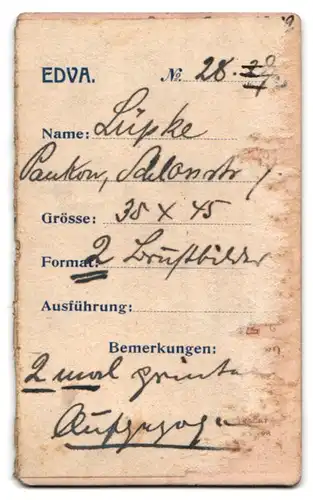 EDVA. № 28.
Name: Lüpke
Pankow, Schlossstr
Grösse: 38 x 45
Format: 2 Brustbilder
Ausführung:
Bemerkungen:
2 mal
Aufgezogen